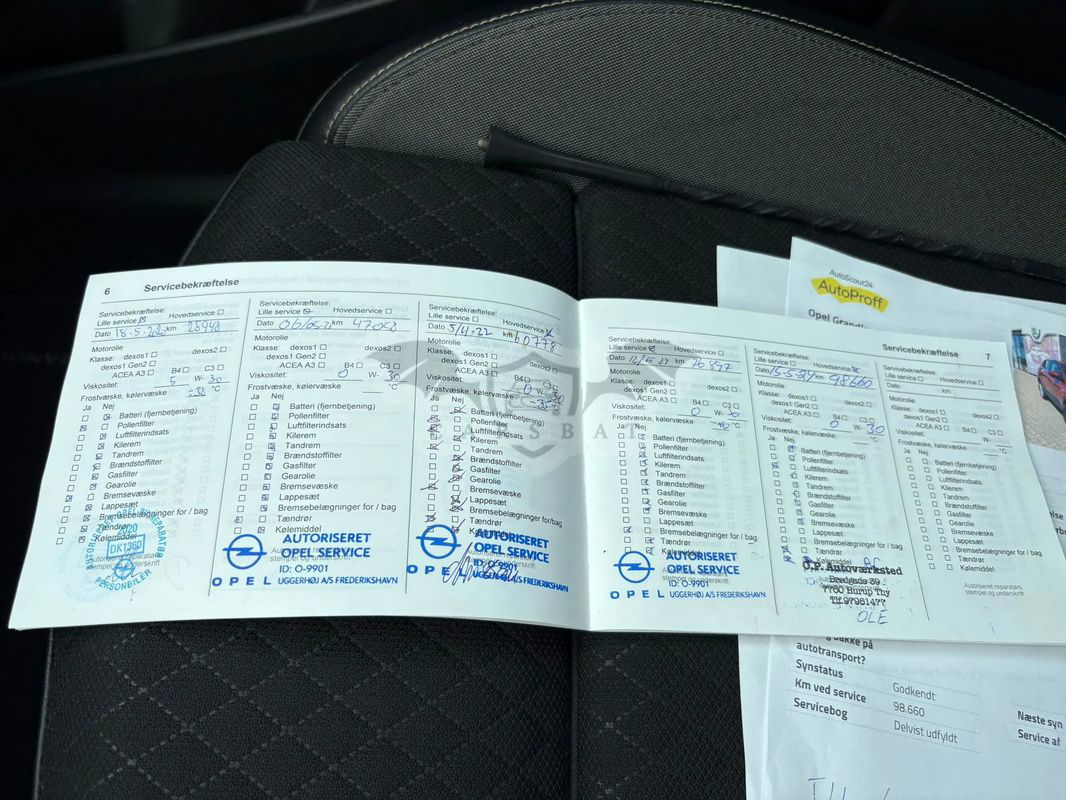 6 Servicebekræftelse
Servicebekræftelse:
Lille service Hovedservice
Dato 18-5-2020 km 28948
Motorolie
Klasse: dexos1 dexos2
dexos1 Gen2
ACEA A3 B4 C3
Viskositet: 5 W- 30
Frostvæske, kølervæske -38 °C
Ja Nej
Batteri (fjernbetjening)
Pollenfilter
Luftfilterindsats
Kilerem
Tandrem
Brændstoffilter
Gasfilter
Gearolie
Bremsevæske
Lappesæt
Bremsebelægninger for / bag
Tændrør
Kølemiddel
DK1360
PERSONBILER
Servicebekræftelse:
Lille service Hovedservice
Dato km 47058
Motorolie
Klasse: dexos1 dexos2
dexos1 Gen2
ACEA A3 B4 C3
Viskositet: 0 W- 30
Frostvæske, kølervæske °C
Ja Nej
Batteri (fjernbetjening)
Pollenfilter
Luftfilterindsats
Kilerem
Tandrem
Brændstoffilter
Gasfilter
Gearolie
Bremsevæske
Lappesæt
Bremsebelægninger for / bag
Tændrør
Kølemiddel
AUTORISERET
OPEL SERVICE
ID: O-9901
OPEL UGGERHØJ A/S FREDERIKSHAVN
Servicebekræftelse:
Lille service Hovedservice
Dato 5/4-22 km 60778
Motorolie
Klasse: dexos1 dexos2
dexos1 Gen2
ACEA A3 B4 C3
Viskositet: 0 W- 30
Frostvæske, kølervæske -35 °C
Ja Nej
Batteri (fjernbetjening)
Pollenfilter
Luftfilterindsats
Kilerem
Tandrem
Brændstoffilter
Gasfilter
Gearolie
Bremsevæske
Lappesæt
Bremsebelægninger for/bag
Tændrør
Kølemiddel
AUTORISERET
OPEL SERVICE
ID: O-9901
OPEL UGGERHØJ A/S FREDERIKSHAVN
CARSBAT
Servicebekræftelse:
Lille service Hovedservice
Dato km 76897
Motorolie
Klasse: dexos1 dexos2
dexos1 Gen2
ACEA A3 B4 C3
Viskositet: 0 W- 30
Frostvæske, kølervæske -40 °C
Ja Nej
Batteri (fjernbetjening)
Pollenfilter
Luftfilterindsats
Kilerem
Tandrem
Brændstoffilter
Gasfilter
Gearolie
Bremsevæske
Lappesæt
Bremsebelægninger for / bag
Tændrør
Kølemiddel
AUTORISERET
OPEL SERVICE
ID: O-9901
OPEL UGGERHØJ A/S FREDERIKSHAVN
Servicebekræftelse 7
Servicebekræftelse:
Lille service Hovedservice
Dato 15-5-24 km 98660
Motorolie
Klasse: dexos1 dexos2
dexos1 Gen2
ACEA A3 B4 C3
Viskositet: 0 W- 30
Frostvæske, kølervæske °C
Ja Nej
Batteri (fjernbetjening)
Pollenfilter
Luftfilterindsats
Kilerem
Tandrem
Brændstoffilter
Gasfilter
Gearolie
Bremsevæske
Lappesæt
Bremsebelægninger for / bag
Tændrør
Kølemiddel AC
O.P. Autoværksted
Bredgade 39
7760 Hurup Thy
Tlf.97951477
OLE
Servicebekræftelse:
Lille service Hovedservice
Dato: km
Motorolie
Klasse: dexos1 dexos2
dexos1 Gen2
ACEA A3 B4 C3
Viskositet: W-
Frostvæske, kølervæske °C
Ja Nej
Batteri (fjernbetjening)
Pollenfilter
Luftfilterindsats
Kilerem
Tandrem
Brændstoffilter
Gasfilter
Gearolie
Bremsevæske
Lappesæt
Bremsebelægninger for / bag
Tændrør
Kølemiddel
Autoriseret reparatørs
stempel og underskrift
AutoScout24
AutoProff
Opel Grandl
autotransport?
Synstatus Godkendt
Km ved service 98.660
Servicebog Delvist udfyldt
Næste syn
Service af